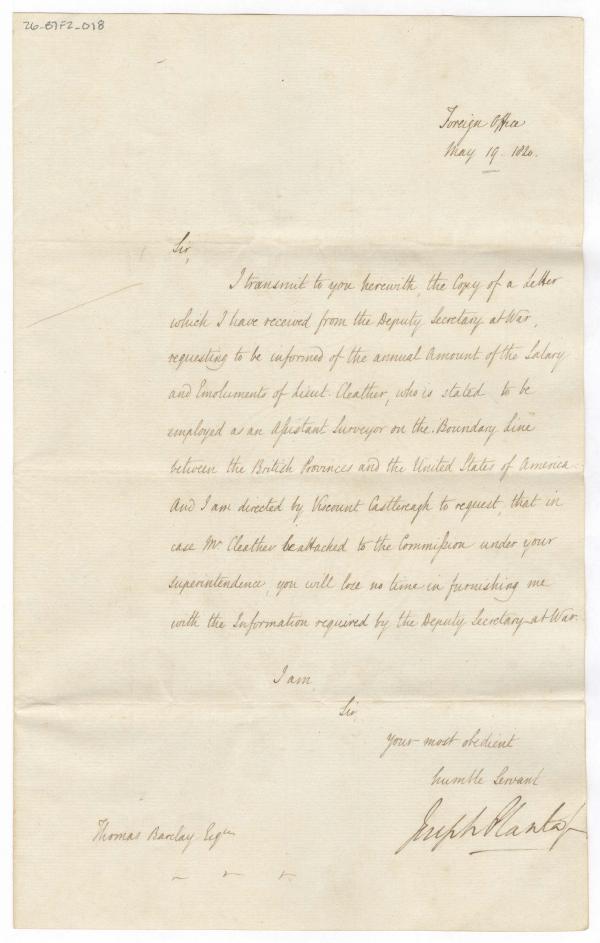 26-B7F2-018
Foreign Office
May 19. 1820.
Sir,
I transmit to you herewith, the Copy of a Letter
which I have received from the Deputy Secretary at War,
requesting to be informed of the annual Amount of the Salary
and Emoluments of Lieut. Cleather, who is stated to be
employed as an Assistant Surveyor on the Boundary Line
between the British Provinces and the United States of America.
And I am directed by Viscount Castlereagh to request, that in
case Mr Cleather be attached to the Commission under your
superintendence, you will lose no time in furnishing me
with the Information required by the Deputy Secretary at War.
I am
Sir,
your most obedient
humble Servant
Joseph Planta
Thomas Barclay Esqre